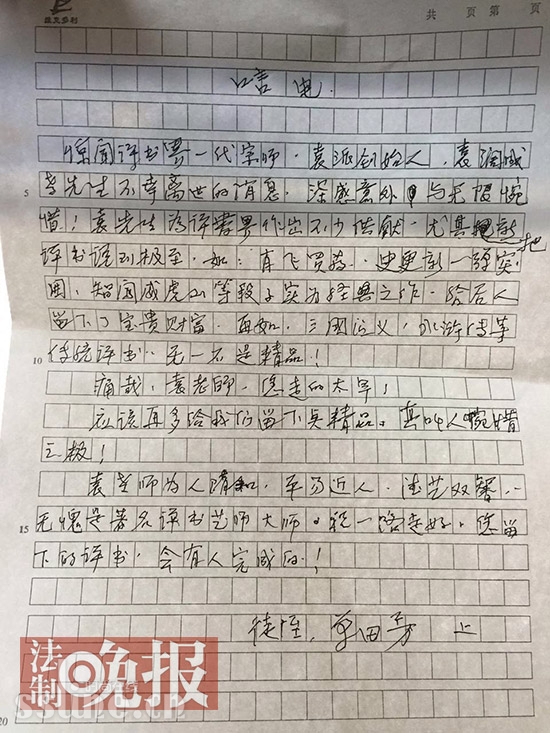 共 页 第 页
唁电
惊闻评书界一代宗师，袁派创始人，袁阔成
5 老先生不幸离世的消息，深感意外，与无限惋
惜！袁先生为评书界作出不少供献，尤其把新
评书说到极至，如：肖飞买药，史更新一弹突
围，智闯威虎山等段子实为经典之作，给后人
留下了宝贵财富，再如，三国演义，水浒传等
10 传统评书，无一不是精品！
痛哉，袁老师，您走的太早！
应该再多给我们留下点精品。真叫人惋惜
之极！
袁老师为人随和，平易近人，德艺双馨，
15 无愧是著名评书艺师大师。祝一路走好，您留
下的评书，会有人完成的！
徒侄，单田芳 上
法制晚报
20